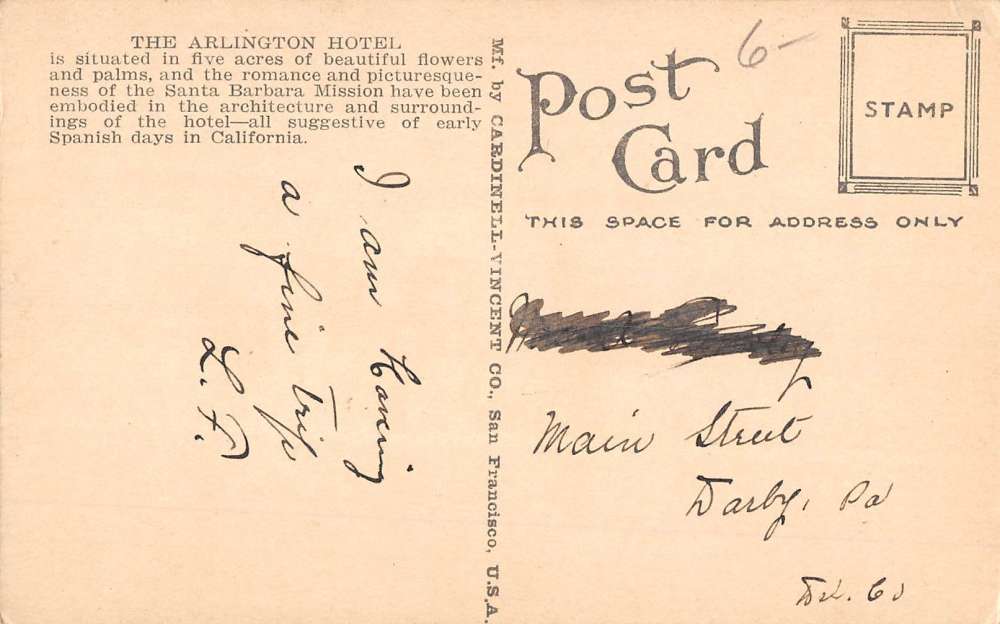 THE ARLINGTON HOTEL
is situated in five acres of beautiful flowers
and palms, and the romance and picturesque-
ness of the Santa Barbara Mission have been
embodied in the architecture and surround-
ings of the hotel—all suggestive of early
Spanish days in California.
I am Having
a fine trip
L. F.
Mf. by CARDINELL-VINCENT CO., San Francisco, U.S.A.
6-
Post
Card
STAMP
THIS SPACE FOR ADDRESS ONLY
Main Street
Darby, Pa
Del. Co